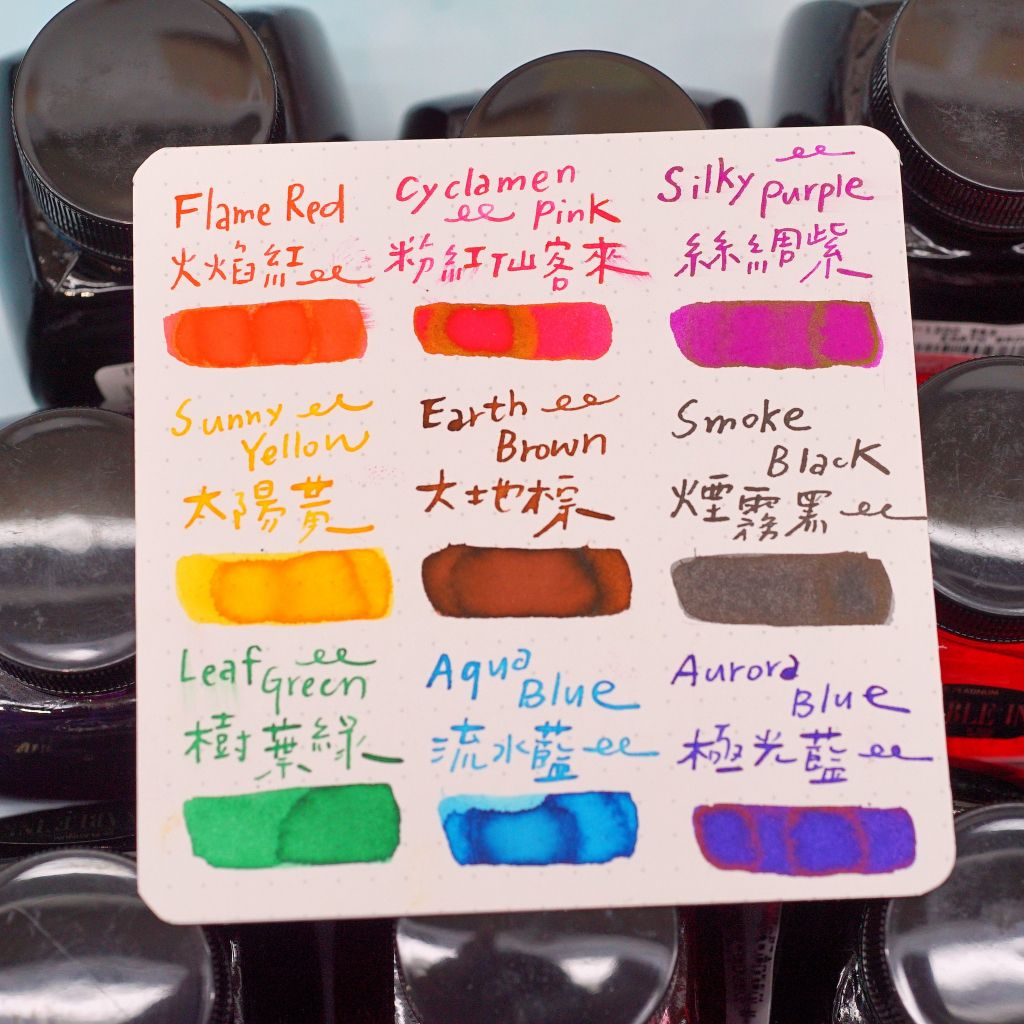 Flame Red
火焰紅
Cyclamen
Pink
粉紅仙客來
Silky
purple
絲綢紫
Sunny
Yellow
太陽黃
Earth
Brown
大地棕
Smoke
Black
煙霧黑
Leaf
Green
樹葉綠
Aqua
Blue
流水藍
Aurora
Blue
極光藍
PLATINUM